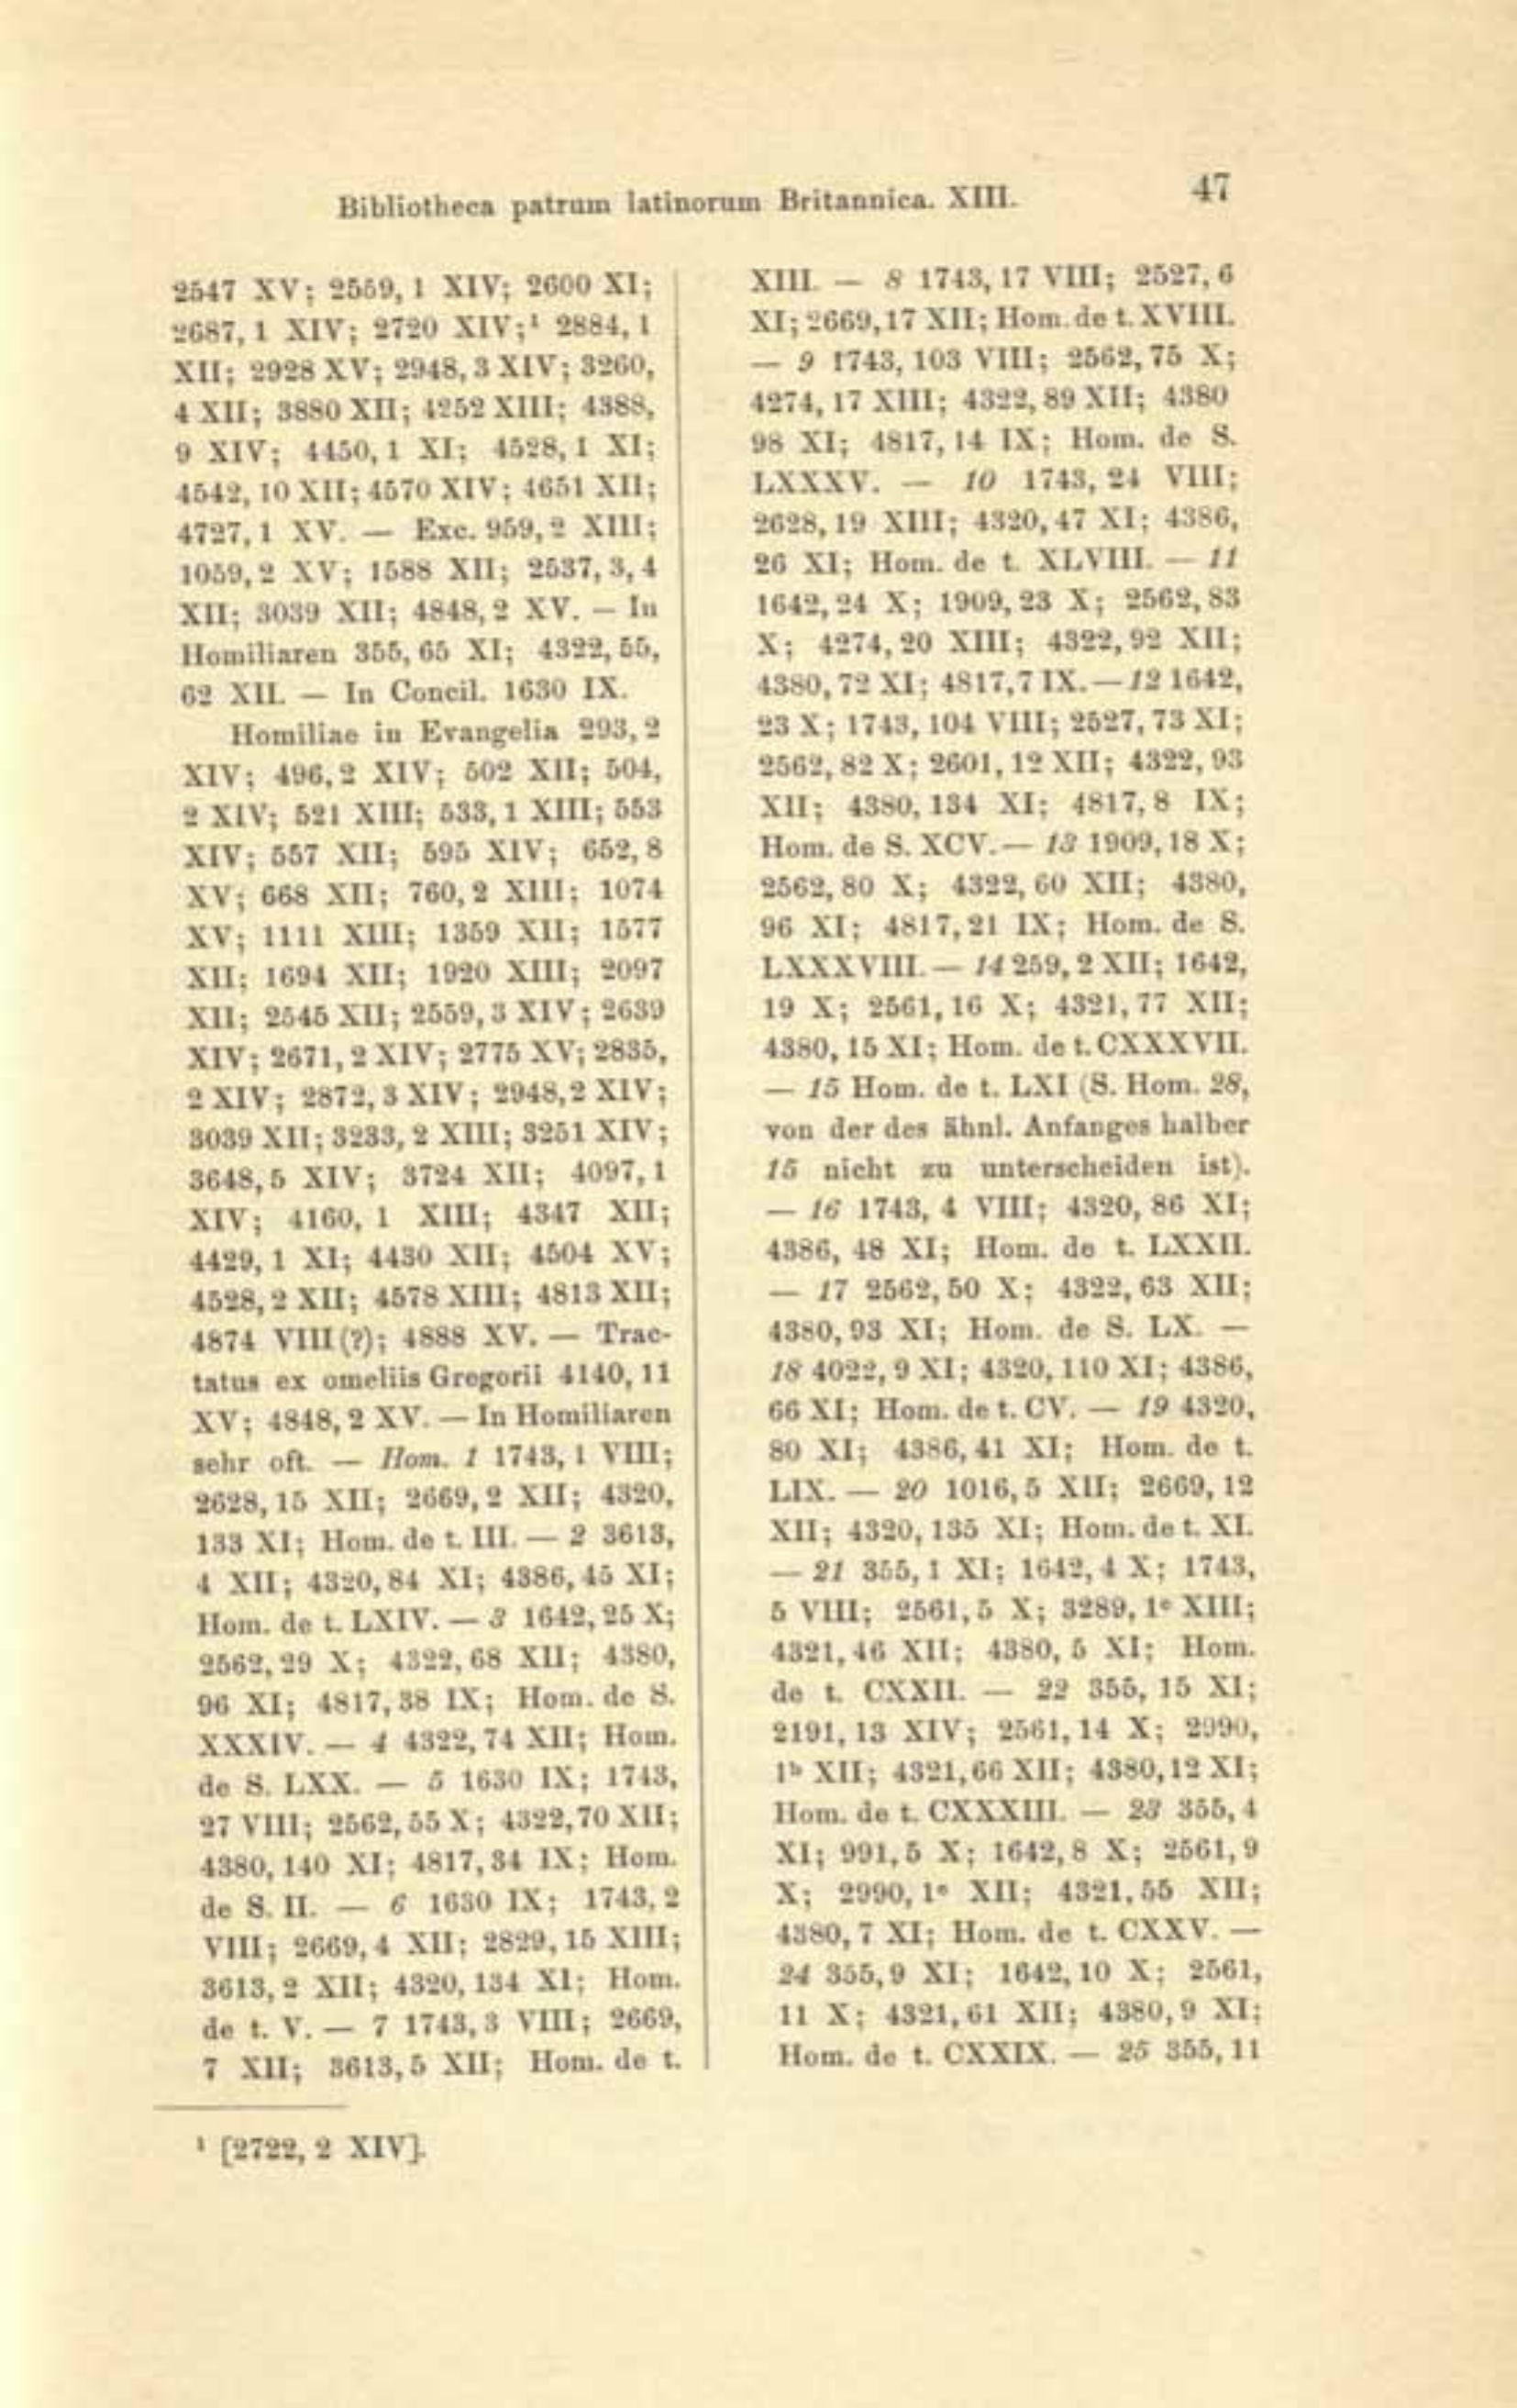 Bibliotheca patrum latinorum Britannica. XIII. 47
2547 XV; 2559, 1 XIV; 2600 XI;
2687, 1 XIV; 2720 XIV;¹ 2884, 1
XII; 2928 XV; 2948, 3 XIV; 3260,
4 XII; 3880 XII; 4252 XIII; 4388,
9 XIV; 4450, 1 XI; 4528, 1 XI;
4542, 10 XII; 4570 XIV; 4651 XII;
4727, 1 XV. — Exc. 959, 2 XIII;
1059, 2 XV; 1588 XII; 2537, 3, 4
XII; 3039 XII; 4848, 2 XV. — In
Homiliaren 355, 65 XI; 4322, 55,
62 XII. — In Concil. 1630 IX.
Homiliae in Evangelia 293, 2
XIV; 496, 2 XIV; 502 XII; 504,
2 XIV; 521 XIII; 533, 1 XIII; 553
XIV; 557 XII; 595 XIV; 652, 8
XV; 668 XII; 760, 2 XIII; 1074
XV; 1111 XIII; 1359 XII; 1577
XII; 1694 XII; 1920 XIII; 2097
XII; 2545 XII; 2559, 3 XIV; 2639
XIV; 2671, 2 XIV; 2775 XV; 2835,
2 XIV; 2872, 3 XIV; 2948, 2 XIV;
3039 XII; 3233, 2 XIII; 3251 XIV;
3648, 5 XIV; 3724 XII; 4097, 1
XIV; 4160, 1 XIII; 4347 XII;
4429, 1 XI; 4430 XII; 4504 XV;
4528, 2 XII; 4578 XIII; 4813 XII;
4874 VIII (?); 4888 XV. — Trac-
tatus ex omeliis Gregorii 4140, 11
XV; 4848, 2 XV. — In Homiliaren
sehr oft. — Hom. 1 1743, 1 VIII;
2628, 15 XII; 2669, 2 XII; 4320,
133 XI; Hom. de t. III. — 2 3613,
4 XII; 4320, 84 XI; 4386, 45 XI;
Hom. de t. LXIV. — 3 1642, 25 X;
2562, 29 X; 4322, 68 XII; 4380,
96 XI; 4817, 38 IX; Hom. de S.
XXXIV. — 4 4322, 74 XII; Hom.
de S. LXX. — 5 1630 IX; 1743,
27 VIII; 2562, 55 X; 4322, 70 XII;
4380, 140 XI; 4817, 34 IX; Hom.
de S. II. — 6 1630 IX; 1743, 2
VIII; 2669, 4 XII; 2829, 15 XIII;
3613, 2 XII; 4320, 134 XI; Hom.
de t. V. — 7 1743, 3 VIII; 2669,
7 XII; 3613, 5 XII; Hom. de t.
XIII. — 8 1743, 17 VIII; 2527, 6
XI; 2669, 17 XII; Hom. de t. XVIII.
— 9 1743, 103 VIII; 2562, 75 X;
4274, 17 XIII; 4322, 89 XII; 4380
98 XI; 4817, 14 IX; Hom. de S.
LXXXV. — 10 1743, 24 VIII;
2628, 19 XIII; 4320, 47 XI; 4386,
26 XI; Hom. de t. XLVIII. — 11
1642, 24 X; 1909, 23 X; 2562, 83
X; 4274, 20 XIII; 4322, 92 XII;
4380, 72 XI; 4817, 7 IX. — 12 1642,
23 X; 1743, 104 VIII; 2527, 73 XI;
2562, 82 X; 2601, 12 XII; 4322, 93
XII; 4380, 134 XI; 4817, 8 IX;
Hom. de S. XCV. — 13 1909, 18 X;
2562, 80 X; 4322, 60 XII; 4380,
96 XI; 4817, 21 IX; Hom. de S.
LXXXVIII. — 14 259, 2 XII; 1642,
19 X; 2561, 16 X; 4321, 77 XII;
4380, 15 XI; Hom. de t. CXXXVII.
— 15 Hom. de t. LXI (S. Hom. 28,
von der des ähnl. Anfanges halber
15 nicht zu unterscheiden ist).
— 16 1743, 4 VIII; 4320, 86 XI;
4386, 48 XI; Hom. de t. LXXII.
— 17 2562, 50 X; 4322, 63 XII;
4380, 93 XI; Hom. de S. LX. —
18 4022, 9 XI; 4320, 110 XI; 4386,
66 XI; Hom. de t. CV. — 19 4320,
80 XI; 4386, 41 XI; Hom. de t.
LIX. — 20 1016, 5 XII; 2669, 12
XII; 4320, 135 XI; Hom. de t. XI.
— 21 355, 1 XI; 1642, 4 X; 1743,
5 VIII; 2561, 5 X; 3289, 1ᶜ XIII;
4321, 46 XII; 4380, 5 XI; Hom.
de t. CXXII. — 22 355, 15 XI;
2191, 13 XIV; 2561, 14 X; 2990,
1ᵇ XII; 4321, 66 XII; 4380, 12 XI;
Hom. de t. CXXXIII. — 23 355, 4
XI; 991, 5 X; 1642, 8 X; 2561, 9
X; 2990, 1ᵃ XII; 4321, 55 XII;
4380, 7 XI; Hom. de t. CXXV. —
24 355, 9 XI; 1642, 10 X; 2561,
11 X; 4321, 61 XII; 4380, 9 XI;
Hom. de t. CXXIX. — 25 355, 11
¹ [2722, 2 XIV].